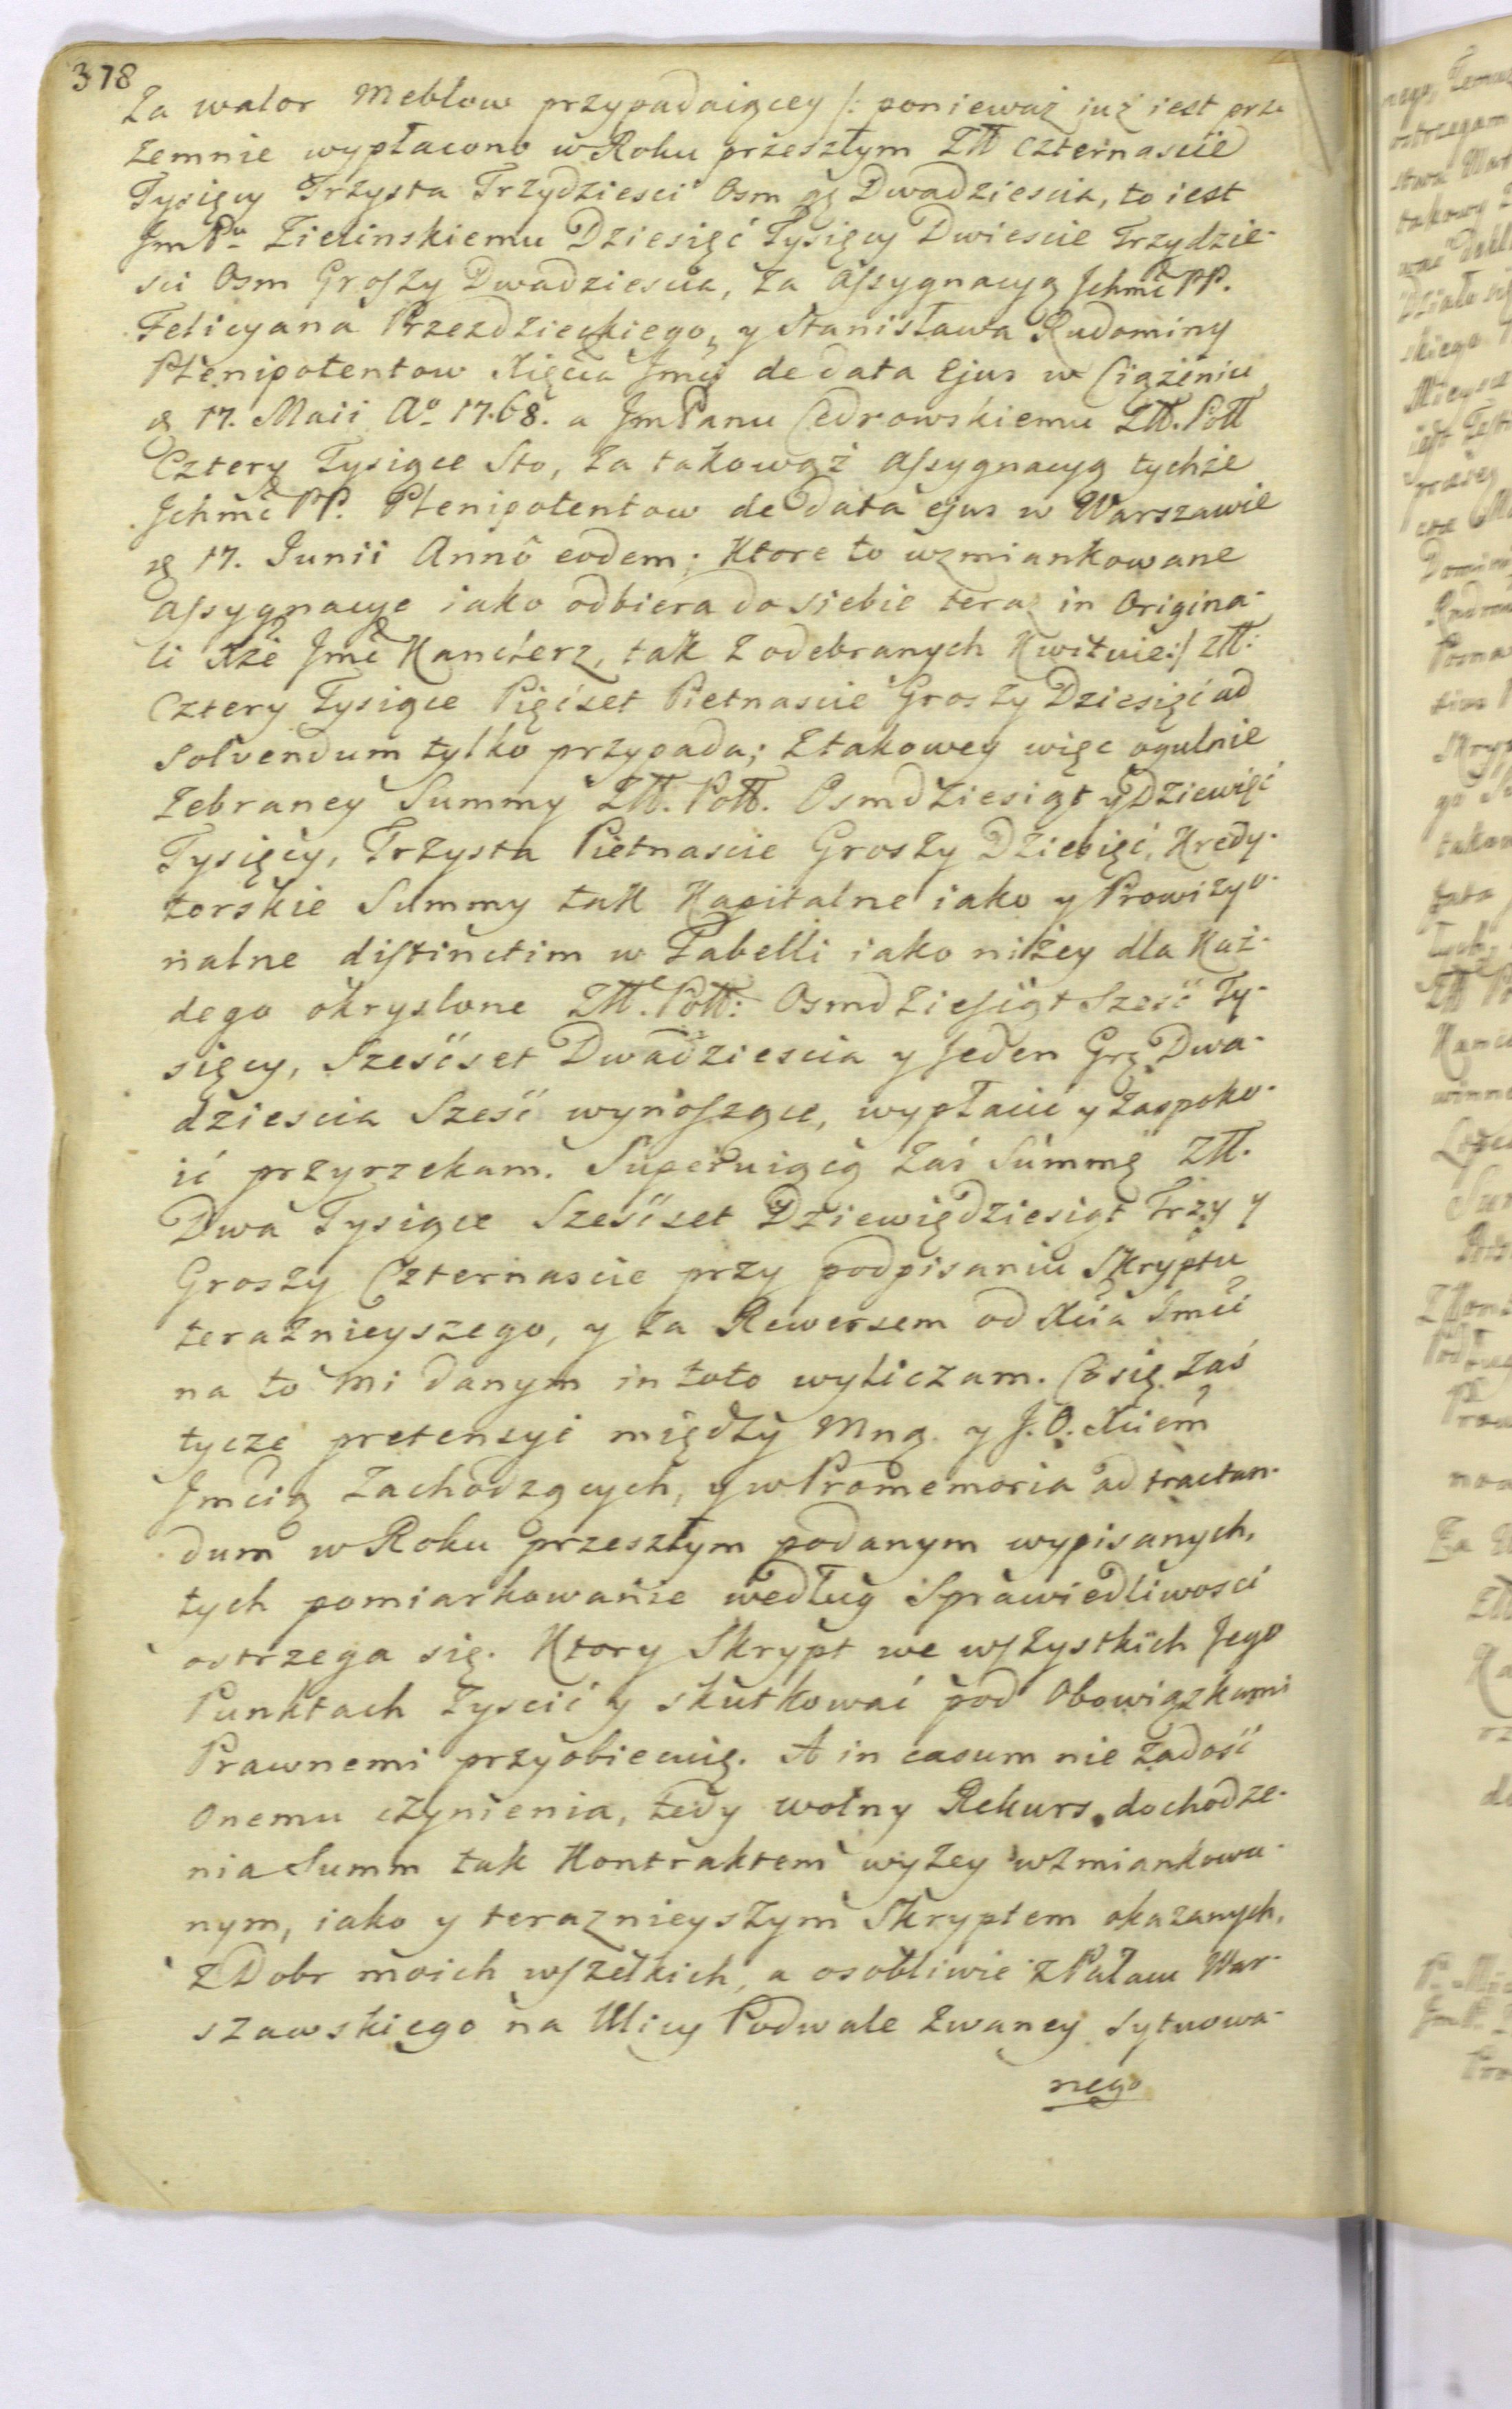 378
Za walor Meblow przypadaiącey /: ponieważ iuż iest prze
zemnie wypłacono w Roku przeszłym Złł czternaście
Tysięcy Trzysta Trzydziesci Osm gę Dwadziescia, to iest
Jm Pu Zielinskiemu Dziesięć Tysięcy Dwiescie Trzydzie-
sci Osm Groszy Dwadziescia, za Assygnacyą Jchmć PP.
Felicyana Przezdzieckiego, y Stanisława Rudominy
Plenipotentow Xięcia Jmci de data Ejus w Ciążeniu
d 17. Maii Ao 17.68. a Jm Panu Cedrowskiemu Złł. Poll
Cztery Tysiące Sto, za takowąż Assygnacyą tychże
Jchmć PP. Plenipotentow de data ejus w Warszawie
d 17. Junii Annô eodem; Ktore to wzmiankowane
Assygnacye iako odbiera do siebie teraz in Origina-
li Xże Jmć Kanclerz, tak z odebranych Kwituie:/ Złł:
Cztery Tysiące Pięćset Pietnascie Groszy Dziesięć ad
solvendum tylko przypada; Z takowey więc ogulnie
zebraney Summy Złł. Poll. Osmdziesiąt y Dziewięć
Tysięcy, Trzysta Pietnascie Groszy Dziesięć, Kredy-
torskie Summy tak Kapitalne iako y Prowizyo-
nalne distinctim w Tabelli iako niżey dla Kaz-
dego okryslone Złł. Poll: Osmdziesiąt Sześć Ty-
sięcy, Sześćset Dwadziescia y Jeden Grę Dwa-
dziescia Sześć wynoszące, wypłacić y zaspoko-
ić przyrzekam. Superuiącą zaś Summę Złł.
Dwa Tysiące Sześćset Dziewiędziesiąt Trzy y
Groszy Czternascie przy podpisaniu Skryptu
teraznieyszego, y za Rewersem od Xcia Jmci
na to mi danym in toto wyliczam. Co się zaś
tycze pretensyi między Mną y J. O. Xciem
Jmcią zachodzących, y w Promemoria ad tractan-
dum w Roku przeszłym podanym wypisanych,
tych pomiarkowanie według Sprawiedliwosci
ostrzega się. Ktory Skrypt we wszystkich Jego
Punktach Zyscić y skutkować pod Obowiązkami
Prawnemi przyobiecuię. A in casum nie zadość
Onemu czynienia, tedy wolny Rekurs dochodze-
nia Summ tak Kontraktem wyżey wzmiankowa-
nym, iako y teraznieyszym Skryptem okazanych,
z Dobr moich wszelkich, a osobliwie z Pałacu War-
szawskiego na Ulicy Podwale zwaney sytuowa-
nego